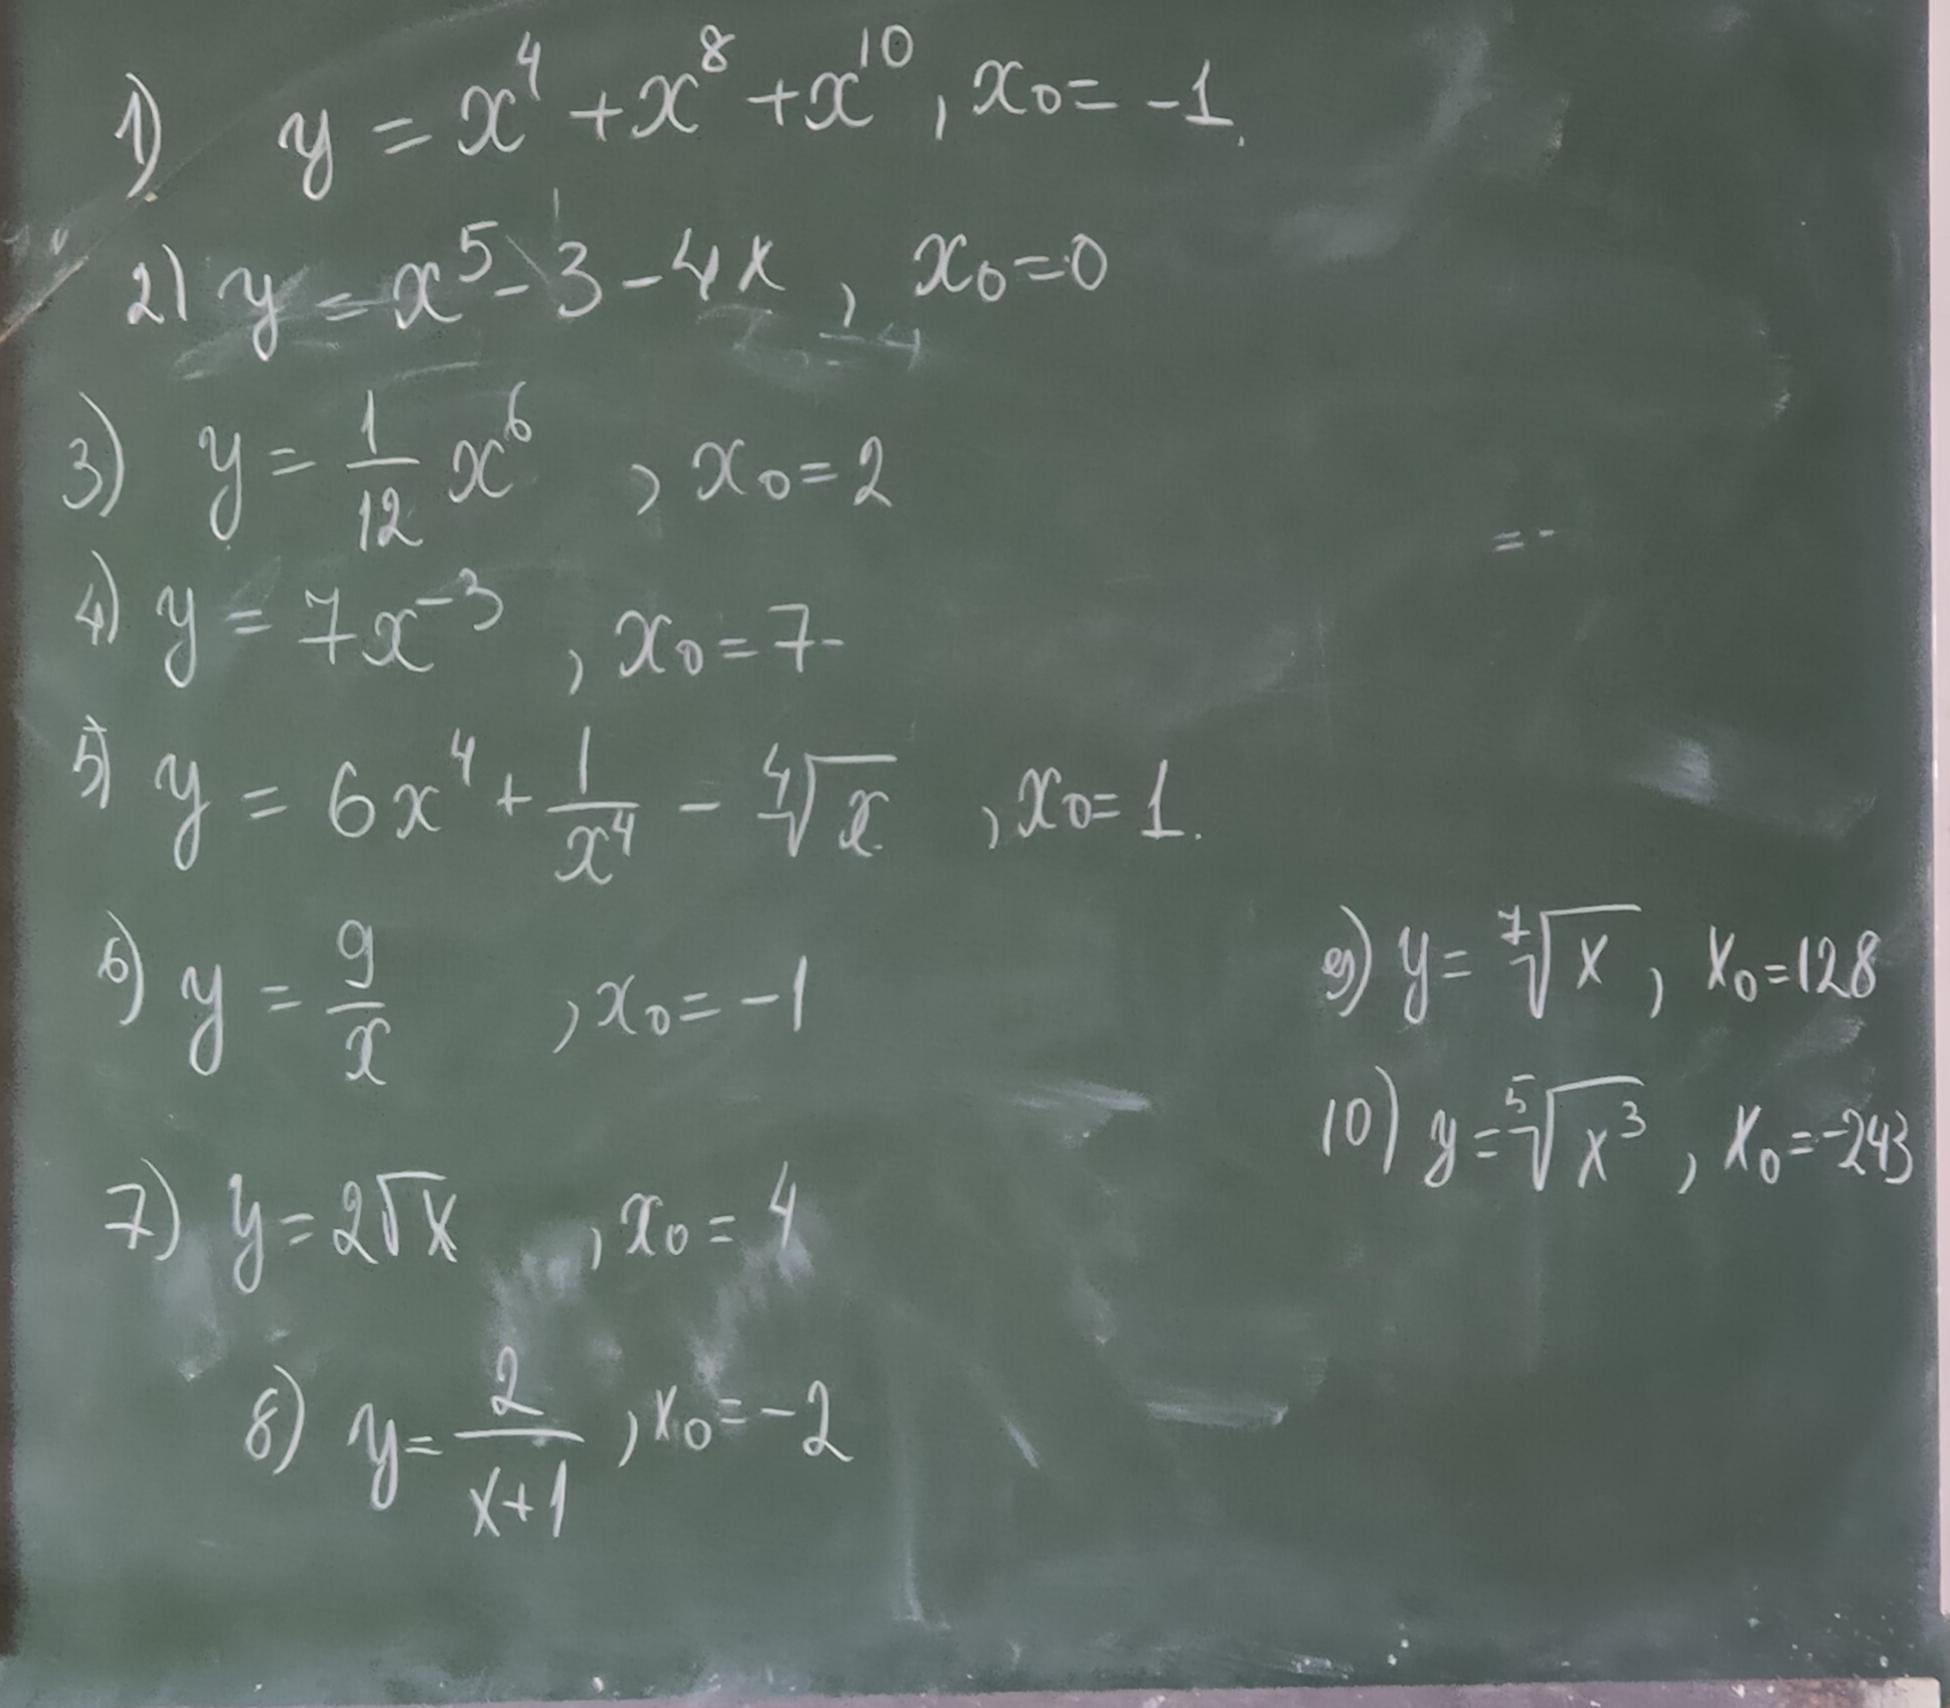 1) y = x⁴ + x⁸ + x¹⁰, x₀ = -1.
2) y = x⁵ - 3 - 4x, x₀ = 0
3) y = 1/12 x⁶, x₀ = 2
4) y = 7x⁻³, x₀ = 7
5) y = 6x⁴ + 1/x⁴ - ⁴√x, x₀ = 1.
6) y = 9/x, x₀ = -1
7) y = 2√x, x₀ = 4
8) y = 2/(x+1), x₀ = -2
9) y = ⁷√x, x₀ = 128
10) y = ⁵√x³, x₀ = -243